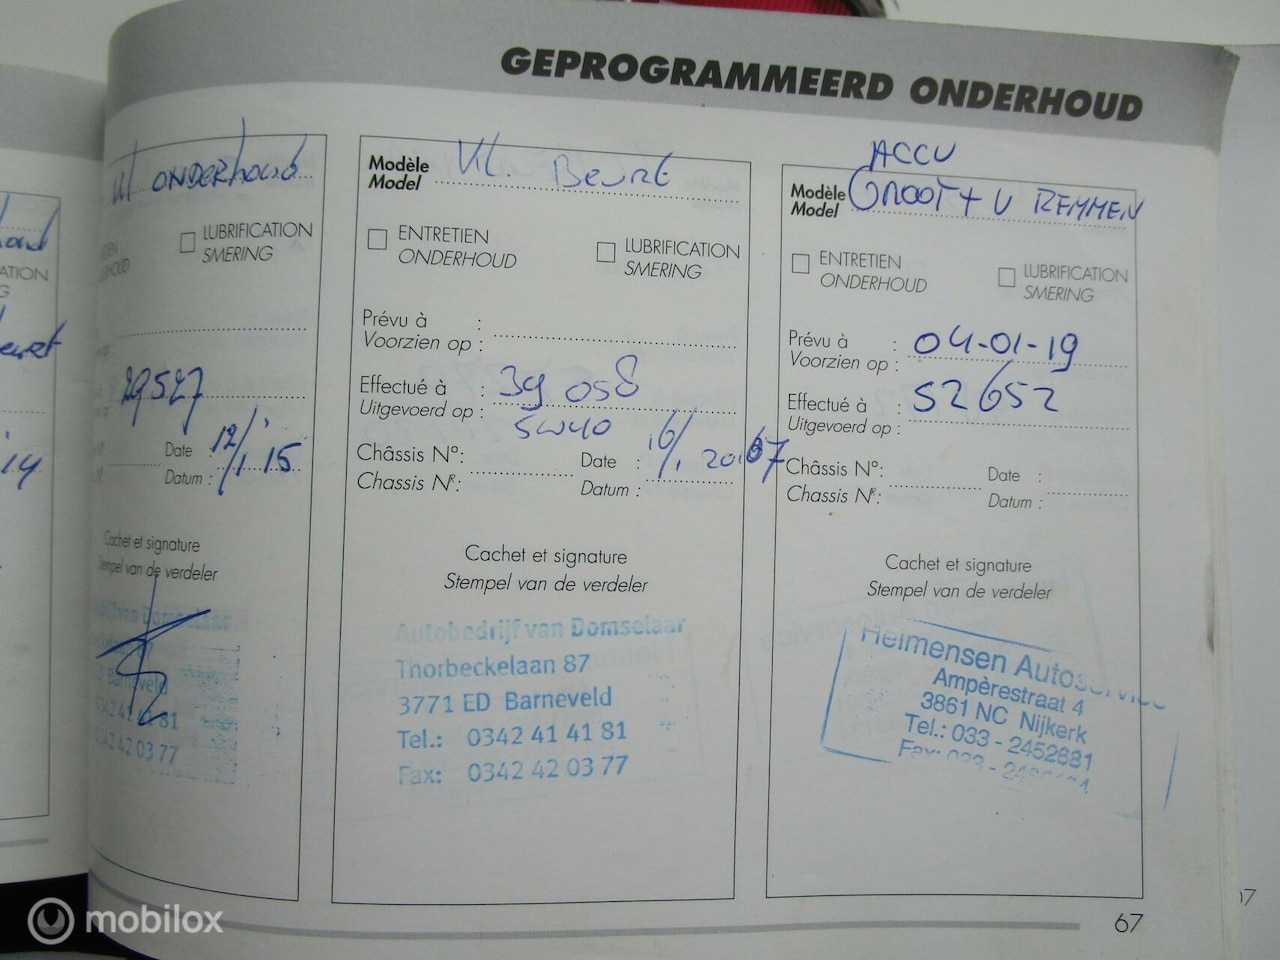 GEPROGRAMMEERD ONDERHOUD
ONDERHOUD
LUBRIFICATION
SMERING
29527
Date
12/1 '15
Datum :
Cachet et signature
Stempel van de verdeler
Barneveld
0342 42 03 77
Modèle
Model
KL. BEURT
ENTRETIEN
ONDERHOUD
LUBRIFICATION
SMERING
Prévu à :
Voorzien op :
Effectué à :
39 058
Uitgevoerd op :
5W40
Châssis N°:
Date :
16/1 2017
Chassis Nr:
Datum :
Cachet et signature
Stempel van de verdeler
Autobedrijf van Domselaar
Thorbeckelaan 87
3771 ED Barneveld
Tel.: 0342 41 41 81
Fax: 0342 42 03 77
ACCU
Modèle
Model
GROOT + V REMMEN
ENTRETIEN
ONDERHOUD
LUBRIFICATION
SMERING
Prévu à :
04-01-19
Voorzien op :
Effectué à :
52652
Uitgevoerd op :
Châssis N°:
Date :
Chassis Nr:
Datum :
Cachet et signature
Stempel van de verdeler
Helmensen Autoservice
Ampèrestraat 4
3861 NC Nijkerk
Tel.: 033 - 2452881
Fax: 033
67
mobilox